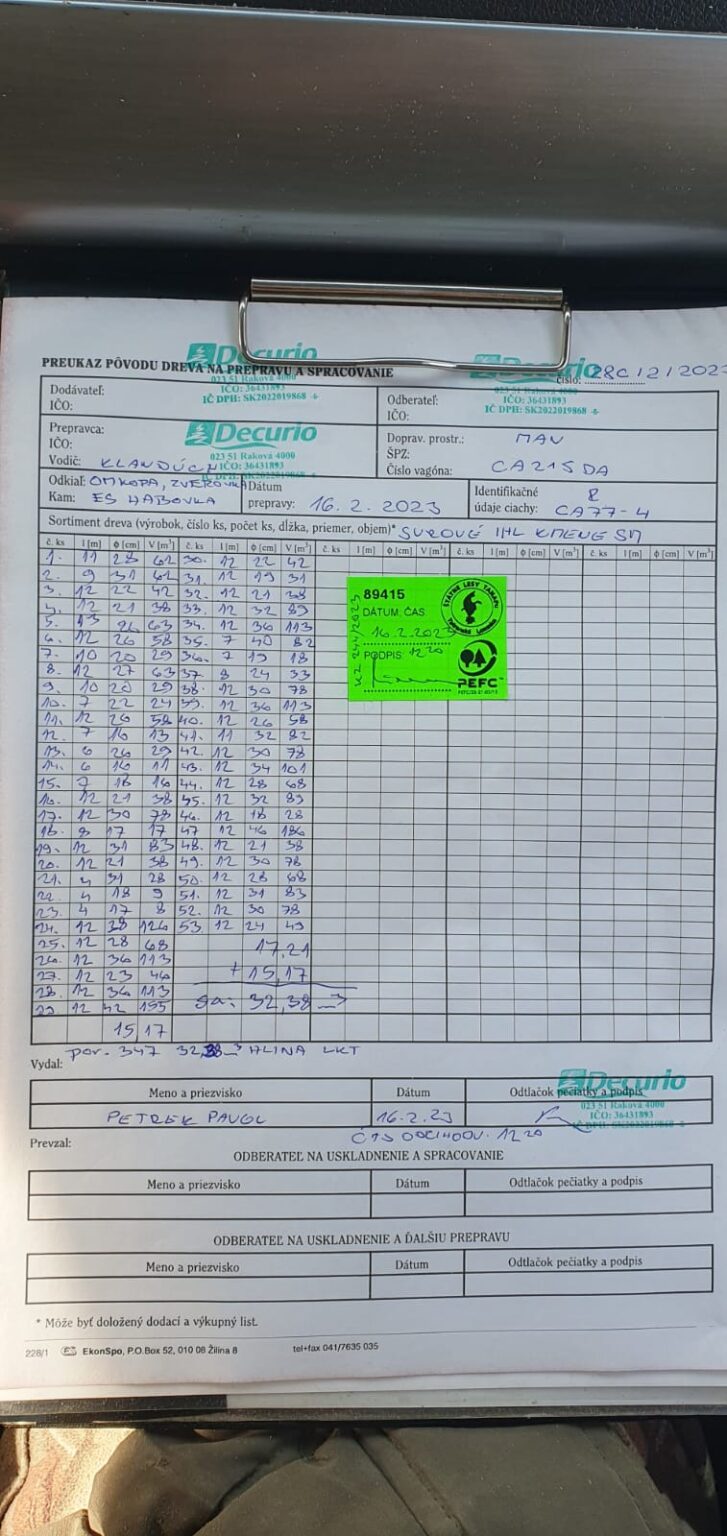 Decurio
PREUKAZ PÔVODU DREVA NA PREPRAVU A SPRACOVANIE
číslo:
023 51 Raková 4000
IČO: 36431893
IČ DPH: SK2022019868
IČO: 36431893
IČ DPH: SK2022019868
Dodávateľ:
IČO:
Odberateľ:
IČO:
Prepravca:
IČO:
Vodič:
Decurio
023 51 Raková 4000
IČO: 36431893
Doprav. prostr.: MAN
ŠPZ:
Číslo vagóna: CA215DA
Odkiaľ:
Kam: ES HABOVKA
Dátum
prepravy: 16. 2. 2023
Identifikačné
údaje ciachy: CA77-4
Sortiment dreva (výrobok, číslo ks, počet ks, dĺžka, priemer, objem)* SUROVÉ IHL KMENE SM
č. ks l [m] ϕ [cm] V [m³] č. ks l [m] ϕ [cm] V [m³] č. ks l [m] ϕ [cm] V [m³] č. ks l [m] ϕ [cm] V [m³] č. ks l [m] ϕ [cm] V [m³]
1. 11 28 62 30. 12 22 42
2. 9 31 62 31. 12 19 31
3. 12 22 42 32. 12 21 38
4. 12 21 38 33. 12 32 89
5. 13 26 63 34. 12 36 113
6. 12 26 58 35. 7 40 82
7. 10 20 29 36. 7 19 18
8. 12 27 63 37 8 24 33
9. 10 20 29 38. 12 30 78
10. 7 22 24 39. 12 36 113
11. 12 26 58 40. 12 26 58
12. 7 16 13 41. 11 32 82
13. 6 26 29 42. 12 30 78
14. 6 16 11 43. 12 34 101
15. 7 18 16 44. 12 28 68
16. 12 21 38 45. 12 32 89
17. 12 30 78 46. 12 18 28
18. 8 17 17 47 12 46 186
19. 12 31 83 48. 12 21 38
20. 12 21 38 49. 12 30 78
21. 4 31 28 50. 12 28 68
22. 4 18 9 51. 12 31 83
23. 4 17 8 52. 12 30 78
24. 12 38 126 53 12 24 49
25. 12 28 68 17,21
26. 12 36 113
27. 12 23 46 + 15,17
28. 12 36 113
29 12 42 155 32,38
15,17
89415
DÁTUM, ČAS:
16.2.2023
PODPIS: 12 20
ŠTÁTNE LESY TANAPU
PEFC
347 HLINA LKT
Vydal:
Decurio
023 51 Raková 4000
IČO: 36431893
IČ DPH: SK2022019868
Meno a priezvisko Dátum Odtlačok pečiatky a podpis
PETREK PAVOL 16.2.23
ČAS ODCHODU. 12 20
Prevzal:
ODBERATEĽ NA USKLADNENIE A SPRACOVANIE
Meno a priezvisko Dátum Odtlačok pečiatky a podpis
ODBERATEĽ NA USKLADNENIE A ĎALŠIU PREPRAVU
Meno a priezvisko Dátum Odtlačok pečiatky a podpis
* Môže byť doložený dodací a výkupný list.
228/1 EkonSpo, P.O.Box 52, 010 08 Žilina 8 tel+fax 041/7635 035